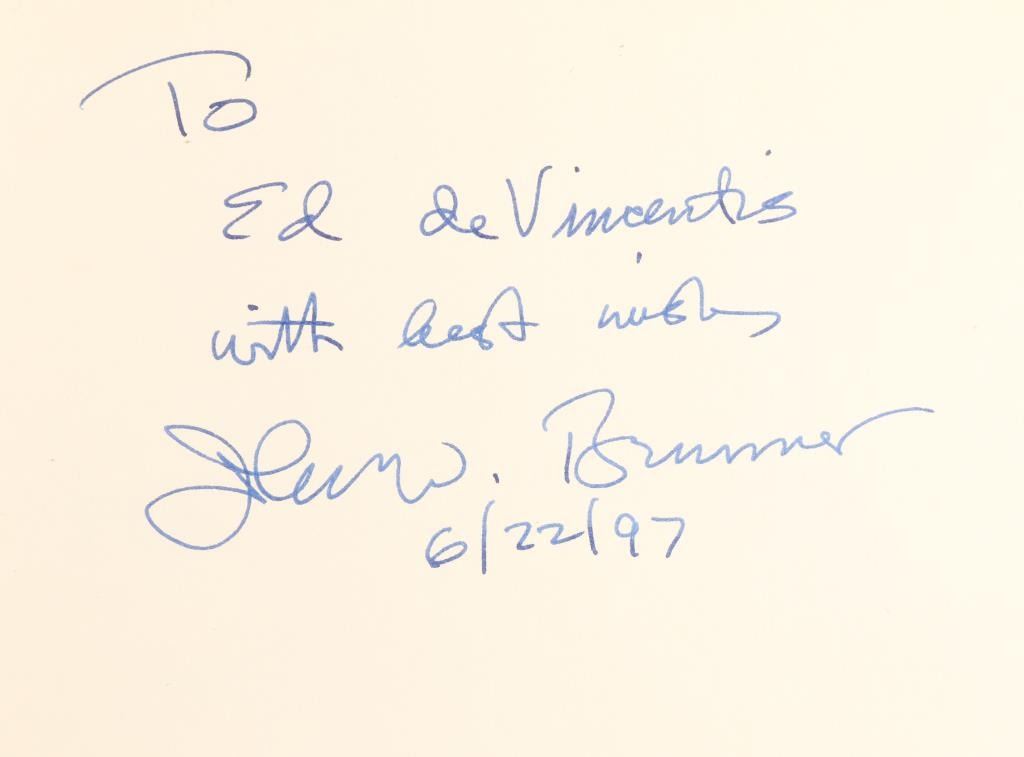 To
Ed de Vincentis
with best wishes
W. Brunner
6/22/97